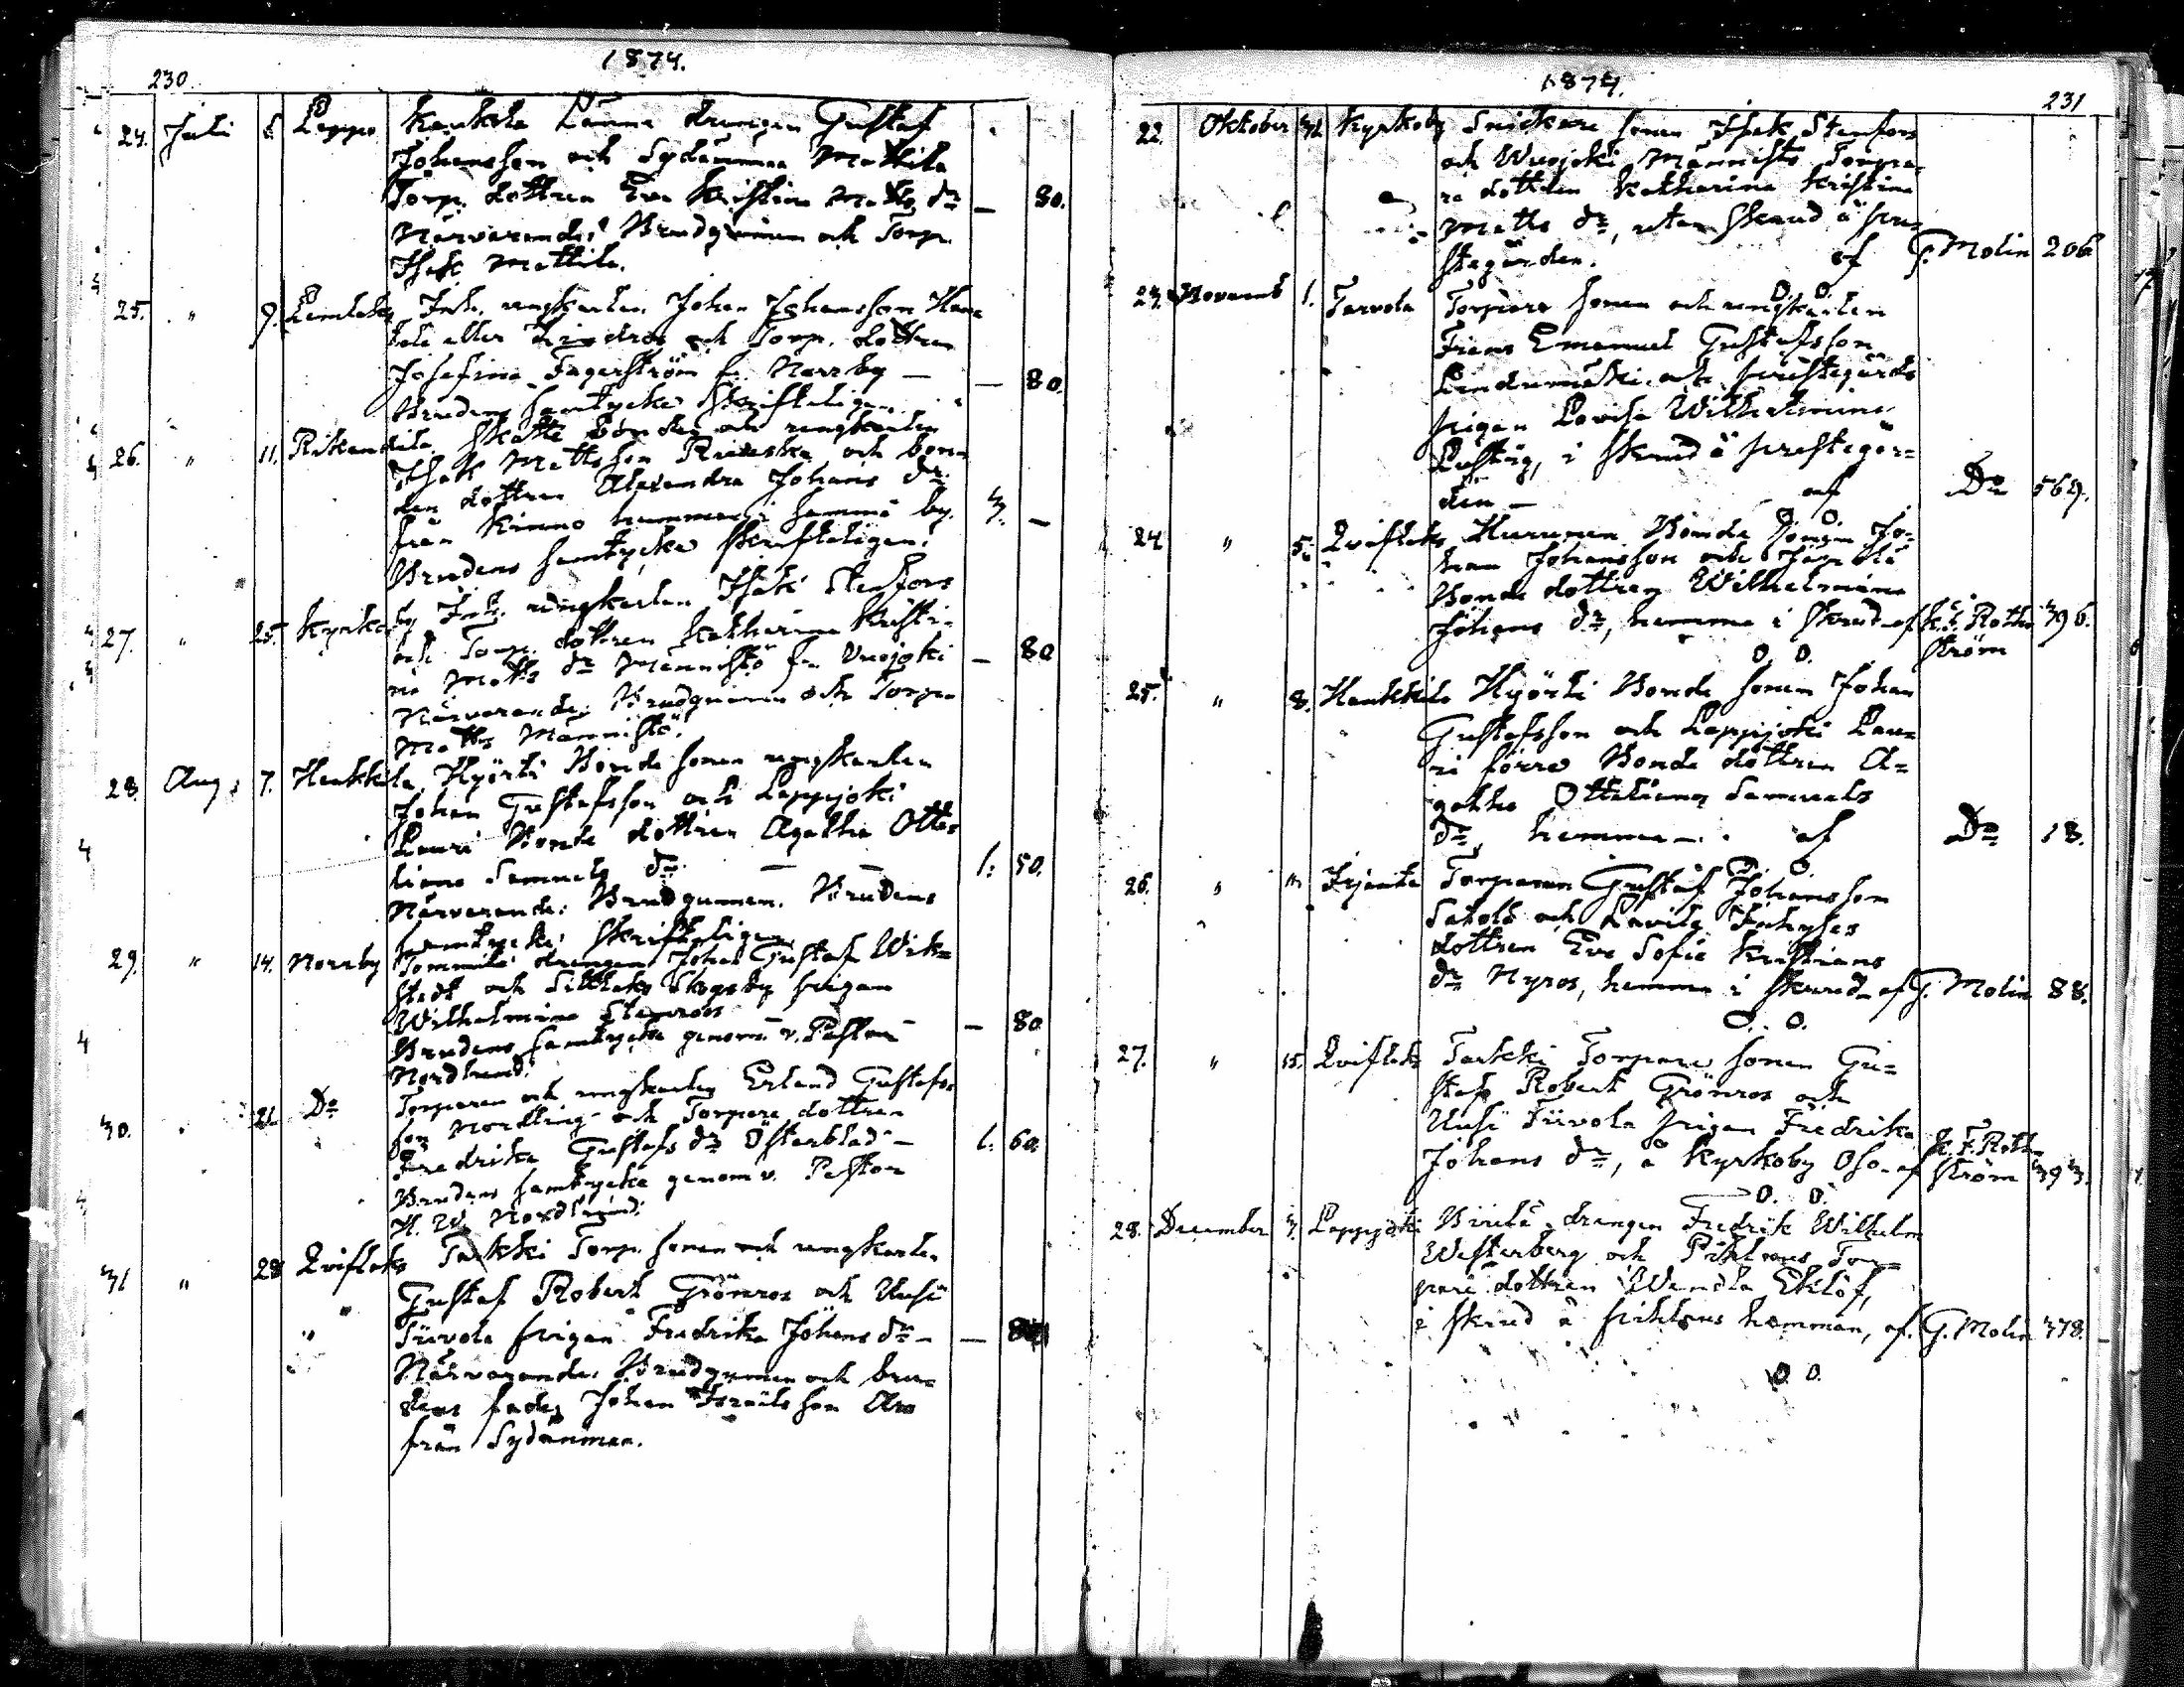 230
1874.
24. Juli 5. Lappo Kaukola Lamma drängen Gustaf
Johansson och Sydänmaa Mattila
Torp. dottren Eva Kristina Matts dr — 80.
Närvarande: Brudgummen och Torp.
Isak Mattila.
25. " 9. Lemlaks Inh. ungkarlen Johan Johansson
eller Lindros och Torp. dottren
Josefina Fagerström fr. Norrby — — 80.
Brudens samtycke skrifteligen.
26. " 11. Skatte bonden och ungkarlen
Isak Mattsson och bon-
den dottren Alexandra Johans dr
från Kinno hemman i samma by. 3. —
Brudens samtycke skrifteligen.
27. " 25. Kyrkoby Inh. ungkarlen Isak Stenfors
och Torp. dottren Katharina Kristi-
na Matts dr Männistö fr. Vuojoki — 80
Närvarande: Brudgummen och Torp.
Matts Männistö.
28. Aug: 7. Hankkila Hyörti Bonde sonen ungkarlen
Johan Gustafsson och Lappijoki
Lauri Bonde dottren Agatha Otte
liana Samuels dr — — 1. 50.
Närvarande: Brudgummen. Brudens
samtycke: skrifteligen.
29. " 14. Norrby Tommila drängen Johan Gustaf Wik-
stedt och Lillaks Skogsby pigan
Wilhelmina Stenroos — 80
Brudens samtycke genom v. Pastor
Nordlund.
30. 21. Do Torparen och ungkarlen Erland Gustafs-
son Nordling och Torpare dottren
Fredrika Gustafs dr Österblad — 1. 60.
Brudens samtycke genom v. Pastor
Nordlund.
31 " 28 Qviflaks Taikki Torp. sonen och ungkarlen
Gustaf Robert Grönros och Uusi
Tiivola pigan Fredrika Johans dr — —
Närvarande: Brudgummen och bru-
dens fader Johan Israelsson
från Sydänmaa.
1874.
231
22. Oktober 31. Kyrkoby Snickare sonen Isak Stenfors
och Wuojoki Männistö Torpa-
re dottren Katharina Kristina
Matts dr, utan skrud å pre-
stegården. af G. Molin 206
O. O.
23. Novemb 1. Tarvola Torpare sonen och ungkarlen
Frans Emanuel Gustafsson
Lindumäki och prestegårds
pigan Lovisa Wilhelmina
Lustig, i skrud å prestegår-
den — af Do 569.
O. O.
24. " 5. Qviflaks Hurunen Bonde sonen Jo-
han Johansson och
Bonde dottren Wilhelmina
Johans dr, hemma i skrud af K. F. Roth- 396.
O. O. ström
25. " 8. Hankkila Hyörti Bonde sonen Johan
Gustafsson och Lappijoki Lau-
ri förre Bonde dottren A-
gatha Otteliana Samuels
dr, hemma — af Do 13.
O. O.
26. " " Irjanta Torparen Gustaf Johansson
Satola och Lavila Inhyses
dottren Eva Sofia Kristians
dr Nyros, hemma i skrud af G. Molin 88.
O. O.
27. " 15. Qviflaks Taikki Torpare sonen Gu-
staf Robert Grönros och
Uusi Tiivola pigan Fredrika K. F. Roth-
Johans dr, å Kyrkoby Oso. af ström 393.
O. O.
28. December 3. Lappijoki drängen Fredrik Wilhelm
Westerberg och Pihlvus Tor-
pare dottren Wendla Eklöf,
i skrud å Pihlvus hemman, af G. Molin 378.
O. O.